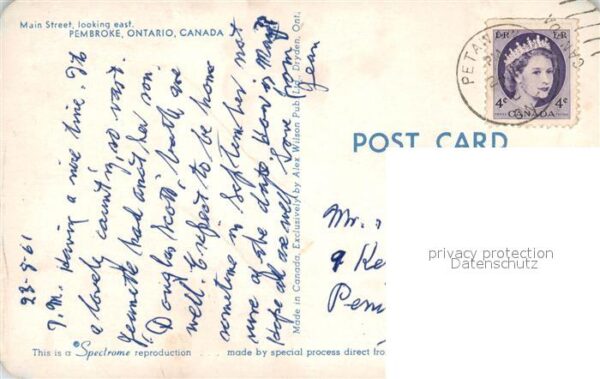 Main Street, looking east.
PEMBROKE, ONTARIO, CANADA
23-9-61
J.M. Having a nice time. Its
a lovely country, so vast.
Jeanette had another son.
"Douglas Scott" both are
well. Expect to be home
sometime in September not
sure of the date. How is
Hope all are well. Love from
Jean
Made in Canada. Exclusively by Alex Wilson Pub. Ltd., Dryden, Ont.
This is a Spectrome reproduction . . . made by special process direct fro
PETAWA
CANADA
E·R
4¢ 4¢
CANADA
POST CARD
Mr.
9 Ke
Pem
privacy protection
Datenschutz